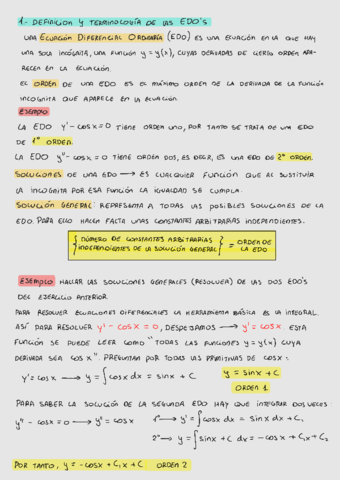 1.- DEFINICION Y TERMINOLOGÍA DE LAS EDO'S
UNA ECUACIÓN DIFERENCIAL ORDINARIA (EDO) ES UNA ECUACIÓN EN LA QUE HAY
UNA SOLA INCÓGNITA, UNA FUNCIÓN y = y(x), CUYAS DERIVADAS DE CIERTO ORDEN APA-
RECEN EN LA ECUACIÓN.
EL ORDEN DE UNA EDO ES EL MÁXIMO ORDEN DE LA DERIVADA DE LA FUNCIÓN
INCOGNITA QUE APARECE EN LA ECUACIÓN.
EJEMPLO
LA EDO y' - cosx = 0 TIENE ORDEN UNO, POR TANTO SE TRATA DE UNA EDO
DE 1er ORDEN.
LA EDO y'' - cosx = 0 TIENE ORDEN DOS, ES DECIR, ES UNA EDO DE 2º ORDEN.
SOLUCIONES DE UNA EDO → ES CUALQUIER FUNCIÓN QUE AL SUSTITUIR
LA INCÓGNITA POR ESA FUNCIÓN LA IGUALDAD SE CUMPLA.
SOLUCIÓN GENERAL: REPRESENTA A TODAS LAS POSIBLES SOLUCIONES DE LA
EDO. PARA ELLO HACEN FALTA UNAS CONSTANTES ARBITRARIAS INDEPENDIENTES.
{ NÚMERO DE CONSTANTES ARBITRARIAS
INDEPENDIENTES DE LA SOLUCIÓN GENERAL } = ORDEN DE
LA EDO
EJEMPLO HALLAR LAS SOLUCIONES GENERALES (RESOLVER) DE LAS DOS EDO'S
DEL EJERCICIO ANTERIOR.
PARA RESOLVER ECUACIONES DIFERENCIALES LA HERRAMIENTA BÁSICA ES LA INTEGRAL.
ASÍ PARA RESOLVER y' - cosx = 0, DESPEJAMOS → y' = cosx. ESTA
FUNCIÓN SE PUEDE LEER COMO "TODAS LAS FUNCIONES y = y(x) CUYA
DERIVADA SEA cosx". PREGUNTAN POR TODAS LAS PRIMITIVAS DE cosx:
y' = cosx → y = ∫cosx dx = sinx + C y = sinx + C
ORDEN 1
PARA SABER LA SOLUCIÓN DE LA SEGUNDA EDO HAY QUE INTEGRAR DOS VECES:
y'' - cosx = 0 → y'' = cosx 1º → y' = ∫cosx dx = sinx + C₁
2º → y = ∫(sinx + C₁) dx = -cosx + C₁x + C₂
POR TANTO, y = -cosx + C₁x + C ORDEN 2